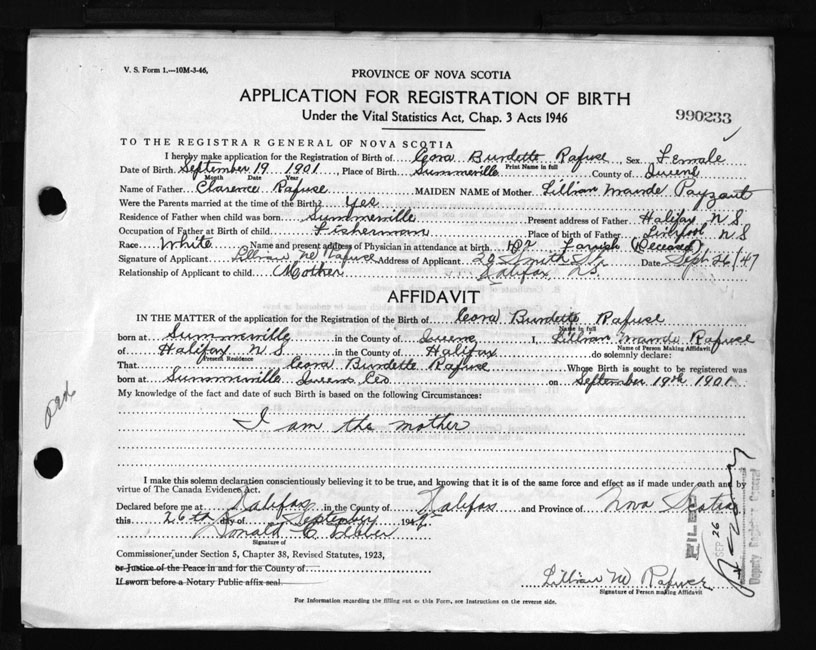 V. S. Form 1.—10M-3-46.
PROVINCE OF NOVA SCOTIA
APPLICATION FOR REGISTRATION OF BIRTH
Under the Vital Statistics Act, Chap. 3 Acts 1946
990233
TO THE REGISTRAR GENERAL OF NOVA SCOTIA
I hereby make application for the Registration of Birth of Cora Burdette Rafuse, Sex Female
Print Name in full
Date of Birth September 19 1901, Place of Birth Summerville County of Queens
Month Date Year
Name of Father Clarence Rafuse MAIDEN NAME of Mother Lillian Maude Payzant
Were the Parents married at time of the Birth? Yes
Residence of Father when child was born Summerville Present address of Father Halifax N S
Occupation of Father at Birth of child Fisherman Place of birth of Father Liverpool N S
Race White Name and present address of Physician in attendance at birth Dr Farish (Deceased)
Signature of Applicant Lillian M Rafuse Address of Applicant 20 Smith St. Date Sept 26/47
Relationship of Applicant to child Mother Halifax N.S.
AFFIDAVIT
IN THE MATTER of the application of the Registration of the Birth of Cora Burdette Rafuse
Name in full
born at Summerville in the County of Queens I, Lillian Maude Rafuse
Name of Person Making Affidavit
of Halifax N S in the County of Halifax do solemnly declare:
Present Residence
That Cora Burdette Rafuse Whose Birth is sought to be registered was
born at Summerville Queens Co on September 19th 1901
My knowledge of the fact and date of such Birth is based on the following Circumstances:
I am the mother
I make this solemn declaration conscientiously believing it to be true, and knowing that it is of the same force and effect as if made under oath and by
virtue of The Canada Evidence Act.
Declared before me at Halifax in the County of Halifax and Province of Nova Scotia
this 26th day of September 1947
Donald C
Signature of
Commissioner under Section 5, Chapter 38, Revised Statutes, 1923,
or Justice of the Peace in and for the County of
If sworn before a Notary Public affix seal
Lillian M Rafuse
Signature of Person making Affidavit
FILED
SEP 26
Deputy Registrar General
For Information regarding the filling out of this Form, see Instructions on the reverse side.